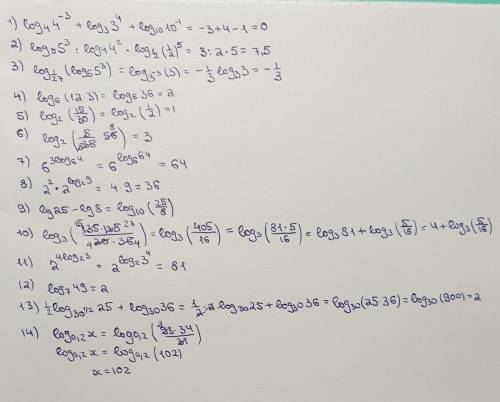 1) log₄4⁻³ + log₃3⁴ + log₁₀10⁻¹ = -3+4-1=0
2) log₅5³ : log₄4² · log_{1/2}(1/2)⁵ = 3:2·5=7,5
3) log_{1/27}(log₅5³) = log_{3⁻³}(3) = -1/3 log₃3 = -1/3
4) log₆(12·3)=log₆36=2
5) log₂(15/30)=log₂(1/2)=1
6) log₂ = 3
7) 6^{3log₆4} = 6^{log₆64} = 64
8) 2²·2^{log₂9} = 4·9=36
9) lg25-lg8=log₁₀(25/8)
10) log₃ = log₃(405/16) = log₃(81·5/16) = log₃81+log₃(5/16)=4+log₃(5/16)
11) 2^{4log₂3} = 2^{log₂3⁴} = 81
12) log₇49=2
13) ½log_{30^{1/2}}25+log₃₀36 = ½·2log₃₀25+log₃₀36=log₃₀(25·36)=log₃₀(900)=2
14) log₀,₂x = log₀,₂
log₀,₂x = log₀,₂(102)
x=102